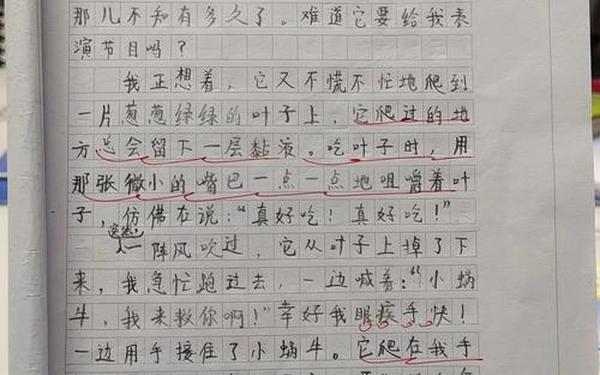 那儿不知有多久了。难道它要给我表
演节目吗？
我正想着，它又不慌不忙地爬到
一片葱葱绿绿的叶子上，它爬过的地
方总会留下一层黏液。吃叶子时，用
那张微小的嘴巴一点一点地咀嚼着叶
子，仿佛在说：“真好吃！真好吃！”
突然，
一阵风吹过，它从叶子上掉了下
来，我急忙跑过去，一边喊着：“小蜗
牛，我来救你啊！”幸好我眼疾手快！
一边用手接住了小蜗牛。它爬在我手